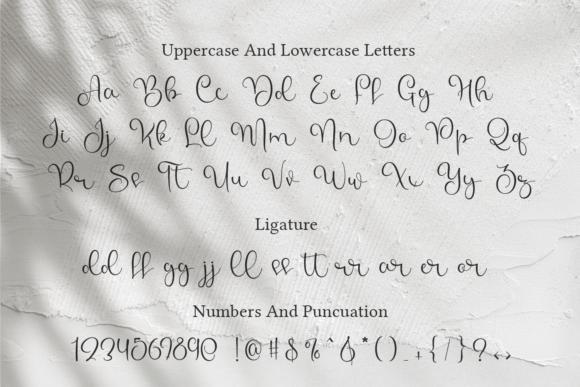 Uppercase And Lowercase Letters
Aa Bb Cc Dd Ee Ff Gg Hh
Ii Jj Kk Ll Mm Nn Oo Pp Qq
Rr Ss Tt Uu Vv Ww Xx Yy Zz
Ligature
dd ff gg jj ll ss tt rr ar er or
Numbers And Puncuation
1234567890 !@#$%^&*()_+{/}?<>